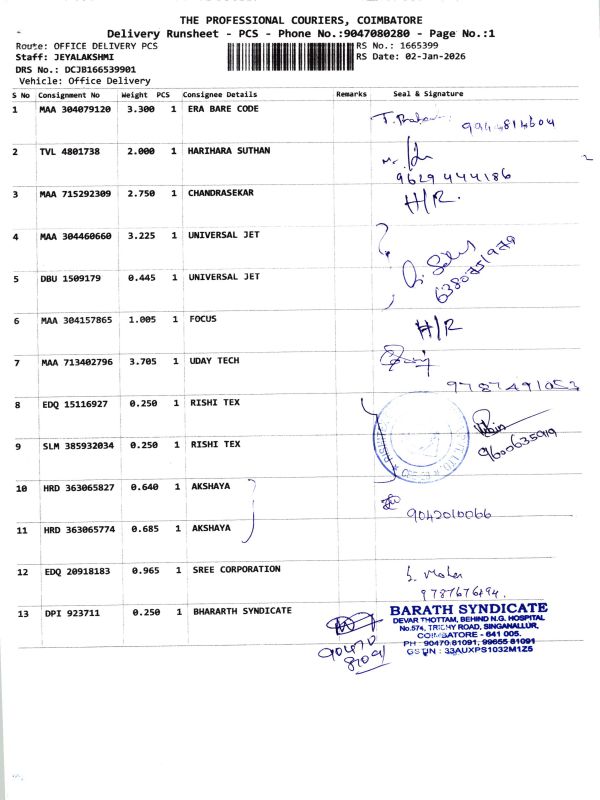 THE PROFESSIONAL COURIERS, COIMBATORE
Delivery Runsheet - PCS - Phone No.:9047080280 - Page No.:1
Route: OFFICE DELIVERY PCS
RS No.: 1665399
Staff: JEYALAKSHMI
RS Date: 02-Jan-2026
DRS No.: DCJB166539901
Vehicle: Office Delivery
S No Consignment No Weight PCS Consignee Details Remarks Seal & Signature
1 MAA 304079120 3.300 1 ERA BARE CODE
2 TVL 4801738 2.000 1 HARIHARA SUTHAN
9629 444186
3 MAA 715292309 2.750 1 CHANDRASEKAR H/R.
4 MAA 304460660 3.225 1 UNIVERSAL JET
5 DBU 1509179 0.445 1 UNIVERSAL JET
6380751979
6 MAA 304157865 1.005 1 FOCUS H/R
7 MAA 713402796 3.705 1 UDAY TECH
9787491053
8 EDQ 15116927 0.250 1 RISHI TEX
9 SLM 385932034 0.250 1 RISHI TEX
9600635919
10 HRD 363065827 0.640 1 AKSHAYA
9042010066
11 HRD 363065774 0.685 1 AKSHAYA
12 EDQ 20918183 0.965 1 SREE CORPORATION
9787676794.
13 DPI 923711 0.250 1 BHARARTH SYNDICATE
90470
81091
BARATH SYNDICATE
DEVAR THOTTAM, BEHIND N.G. HOSPITAL
No.574, TRICHY ROAD, SINGANALLUR,
COIMBATORE - 641 005.
PH : 90470 81091, 99655 81091
GSTIN : 33AUXPS1032M1Z5